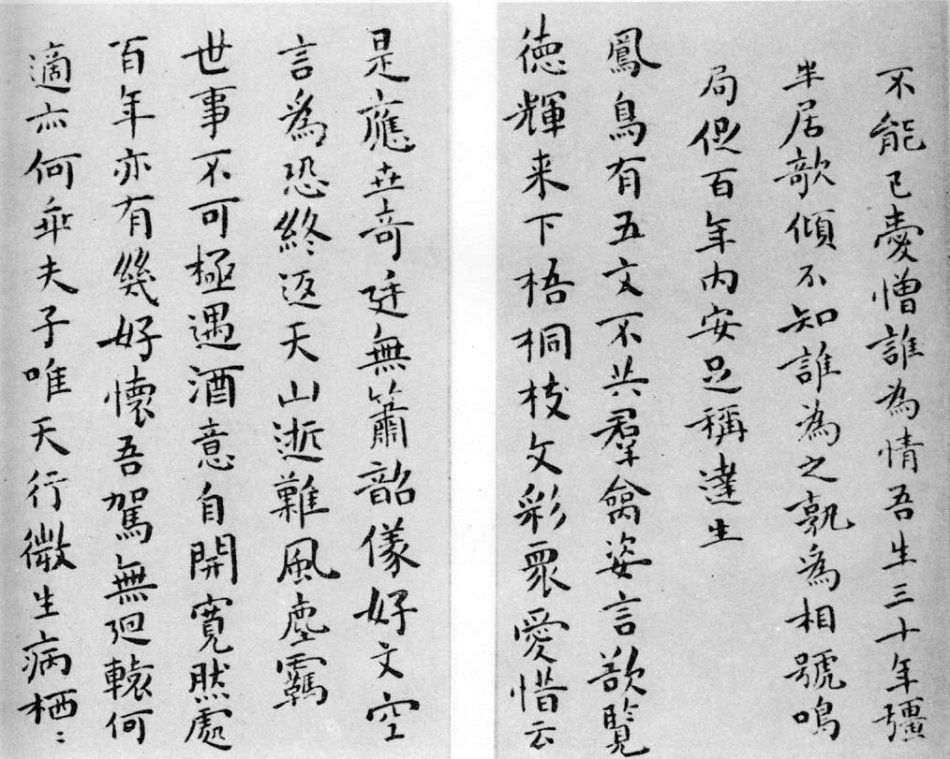 不能已憂憎誰為情吾生三十年彊
半居欹傾不知誰為之孰為相號鳴
局促百年內安足稱達生
鳳鳥有五文不共羣禽姿言欲覽
徳輝来下梧桐枝文彩眾愛惜云
是應世奇廷無簫韶儀好文空
言為恐終返天山逝難風塵羈
世事不可極遇酒意自開寬然處
百年亦有幾好懷吾駕無迴轅何
適亦何乖夫子唯天行微生病栖〻